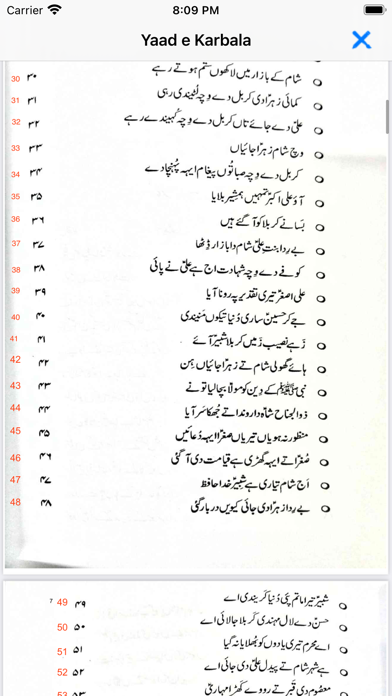 Carrier 8:09 PM
Yaad e Karbala
30 ۳۰ شام کے بازار میں لاکھوں ستم ہوتے رہے
31 ۳۱ کمائی زہراؑ دی کربل دے وچہ لُٹیندی رہی
32 ۳۲ علیؑ دے جائے تاں کربل دے وچہ کُہیندے رہے
33 ۳۳ وچ شام زہراؑ جائیاں
34 ۳۴ کربل دے وچہ صباتُوں پیغام ایہہ پُہنچا دے
35 ۳۵ آؤ علی اکبرؑ تمہیں ہمشیر بلایا
36 ۳۶ بسانے کربلا کو آ گئے ہیں
37 ۳۷ بے رِدا بنت علیؑ شام دا بازار ڈٹھا
38 ۳۸ کوفے دے وچہ شہادت اج ہے علیؑ نے پائی
39 ۳۹ علی اصغرؑ تیری تقدیر پہ رونا آیا
40 ۴۰ جے کر حسینؑ ساری دُنیا تیکوں مَنیندی
41 ۴۱ زہے نصیب زمیں کربلا شبیرؑ آئے
42 ۴۲ ہائے گھولی شام تے زہراؑ جائیاں ہِن
43 ۴۳ نبی ﷺ کے دِین کو مولاؑ بچا لیا تو نے
44 ۴۴ ذوالجناح شاہؑ دا روندا تے جُھکا سَر آیا
45 ۴۵ منظور نہ ہویاں تیریاں صغراؑ ایہہ دُعائیں
46 ۴۶ صُغراؑ تے ایہہ گھڑی ہے قیامت دی آ گئی
47 ۴۷ اَج شام تیاری ہے شبیرؑ خدا حافظ
48 ۴۸ بے رِدا زہراؑ دی جائی کیویں دربار گئی
49 ۴۹ شبیرؑ تیرا ماتم پئی دُنیا کریندی اے
50 ۵۰ حسنؑ دے لال مہندی کربلا جا لائی اے
51 ۵۱ اے محرم تیری یادوں کو بُھلایا نہ گیا
52 ۵۲ ہے شہر شام تے پیدل علیؑ دی جائی اے
53 ۵۳ معصومؑ دی قبر تے رووے کھڑی مہارتی